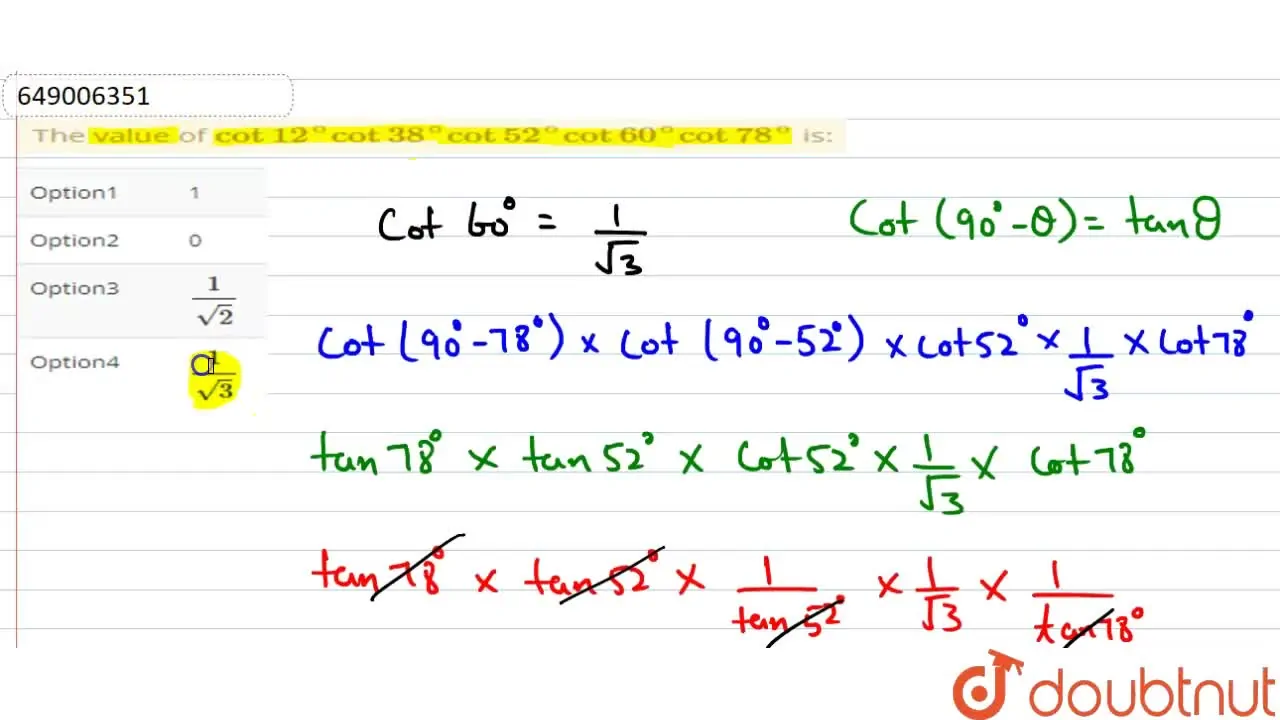 649006351
The value of cot 12° cot 38° cot 52° cot 60° cot 78° is:
Option1 1
Option2 0
Option3 1/√2
Option4 1/√3
Cot 60° = 1/√3
Cot (90° - θ) = tan θ
Cot (90° - 78°) × Cot (90° - 52°) × Cot 52° × 1/√3 × Cot 78°
tan 78° × tan 52° × Cot 52° × 1/√3 × Cot 78°
tan 78° × tan 52° × 1/tan 52° × 1/√3 × 1/tan 78°
doubtnut